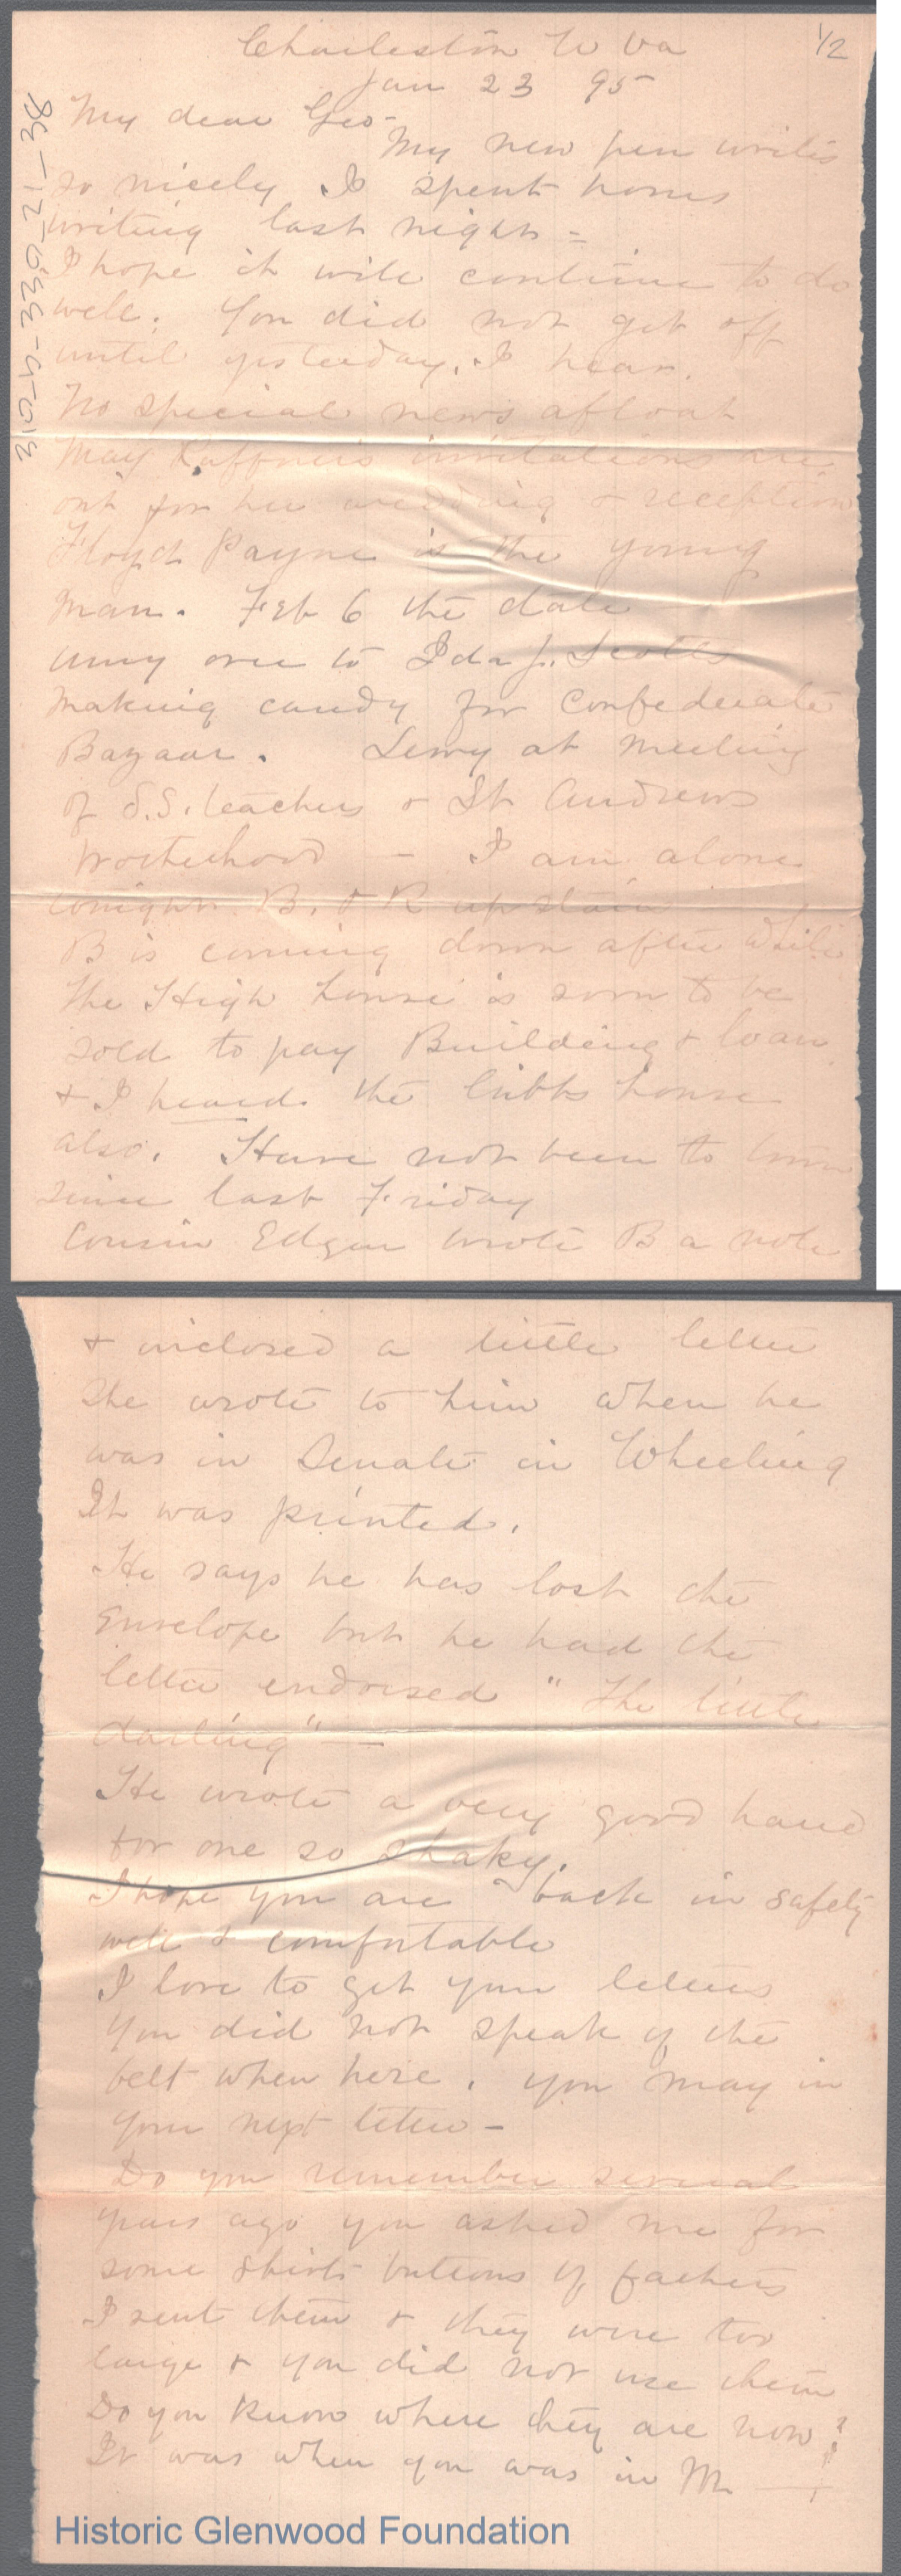 1/2
Charleston W Va
Jan 23 95
My dear Geo-
My new pen writes
so nicely I spent hours
writing last night =
I hope it will continue to do
well. You did not get off
until yesterday, I hear.
No special news afloat
May Ruffners invitations are
out for her wedding & reception
Floyd Payne is the young
man. Feb 6 the date
Amy over to Ida J. Scotts
making candy for Confederate
Bazaar. Lewy at meeting
of S.S. teachers & St Andrews
Brotherhood - I am alone
tonight. B. & R upstairs
B is coming down after while
The High house is soon to be
sold to pay Building & loan
& I heard the house
also. Have not been to town
since last Friday
Cousin Edgar wrote B a note
& inclosed a little letter
she wrote to him when he
was in Senate in Wheeling
It was printed.
He says he has lost the
Envelope but he had the
letter endorsed "The little
darling" —
He wrote a very good hand
for one so shaky.
I hope you are back in safety
well & comfortable
I love to get your letters
You did not speak of the
belt when here. You may in
your next letter -
Do you remember several
years ago you asked me for
some shirt buttons of fathers
I sent them & they were too
large & you did not use them
Do you know where they are now?
It was when you was in M —
3100-5-330-21-38
Historic Glenwood Foundation